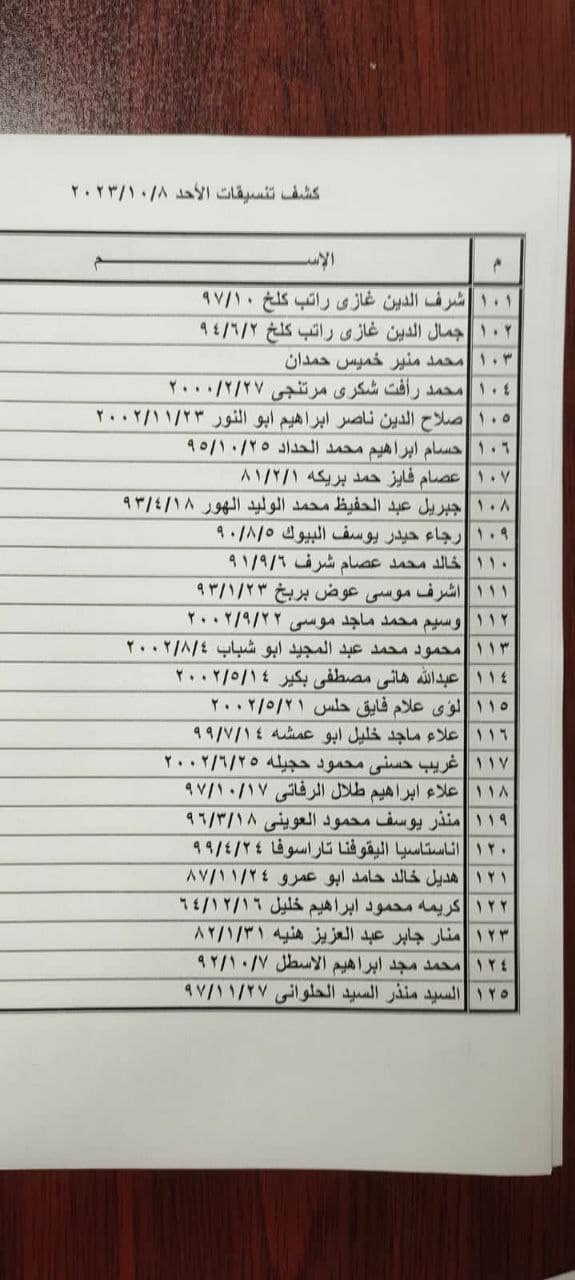 كشف تنسيقات الأحد ٢٠٢٣/١٠/٨
م الإســـــــــــــــــم
١٠١ شرف الدين غازى راتب كلخ ٩٧/١٠
١٠٢ جمال الدين غازى راتب كلخ ٩٤/٦/٢
١٠٣ محمد منير خميس حمدان
١٠٤ محمد رأفت شكرى مرتنجى ٢٠٠٠/٢/٢٧
١٠٥ صلاح الدين ناصر ابراهيم ابو النور ٢٠٠٢/١١/٢٣
١٠٦ حسام ابراهيم محمد الحداد ٩٥/١٠/٢٥
١٠٧ عصام فايز حمد بريكه ٨١/٢/١
١٠٨ جبريل عبد الحفيظ محمد الوليد الهور ٩٣/٤/١٨
١٠٩ رجاء حيدر يوسف البيوك ٩٠/٨/٥
١١٠ خالد محمد عصام شرف ٩١/٩/٦
١١١ اشرف موسى عوض بريخ ٩٣/١/٢٣
١١٢ وسيم محمد ماجد موسى ٢٠٠٢/٩/٢٢
١١٣ محمود محمد عبد المجيد ابو شباب ٢٠٠٢/٨/٤
١١٤ عبدالله هانى مصطفى بكير ٢٠٠٢/٥/١٤
١١٥ لؤى علام فايق حلس ٢٠٠٢/٥/٢١
١١٦ علاء ماجد خليل ابو عمشه ٩٩/٧/١٤
١١٧ غريب حسنى محمود حجيله ٢٠٠٢/٦/٢٥
١١٨ علاء ابراهيم طلال الرفاتى ٩٧/١٠/١٧
١١٩ منذر يوسف محمود العوينى ٩٦/٣/١٨
١٢٠ اناستاسيا اليقوفنا تاراسوفا ٩٩/٤/٢٤
١٢١ هديل خالد حامد ابو عمرو ٨٧/١١/٢٤
١٢٢ كريمه محمود ابراهيم خليل ٦٤/١٢/١٦
١٢٣ منار جابر عبد العزيز هنيه ٨٢/١/٣١
١٢٤ محمد مجد ابراهيم الاسطل ٩٢/١٠/٧
١٢٥ السيد منذر السيد الحلوانى ٩٧/١١/٢٧